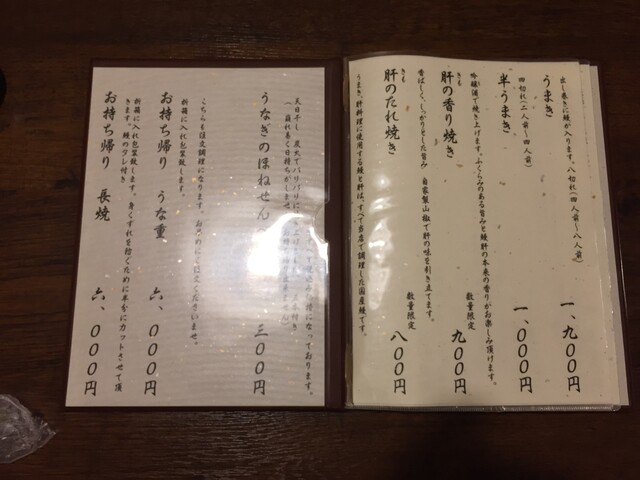 うまき 一、九〇〇円
出し巻きに鰻が入ります。八切れ(四人前〜八人前)
四切れ(二人前〜四人前)
半うまき 一、〇〇〇円
吟醸酒で焼き上げます。ふくらみのある旨みと鰻肝の本来の香りがお楽しみ頂けます。
肝の香り焼き 数量限定 九〇〇円
きも
香ばしく、しっかりとした旨み 自家製山椒で肝の味を引き立てます。
肝のたれ焼き 数量限定 八〇〇円
きも
うまき、肝料理に使用する鰻と肝は、すべて当店で調理した国産鰻です。
天日干し 炭火でパリパリに
うなぎのほねせん 三〇〇円
こちらも注文調理になります。お早めにご注文くださいませ。
折箱に入れ包装致します。
お持ち帰り うな重 六、〇〇〇円
折箱に入れ包装致します。身くずれを防ぐために半分にカットさせて頂
きます。鰻のタレ付き
お持ち帰り 長焼 六、〇〇〇円